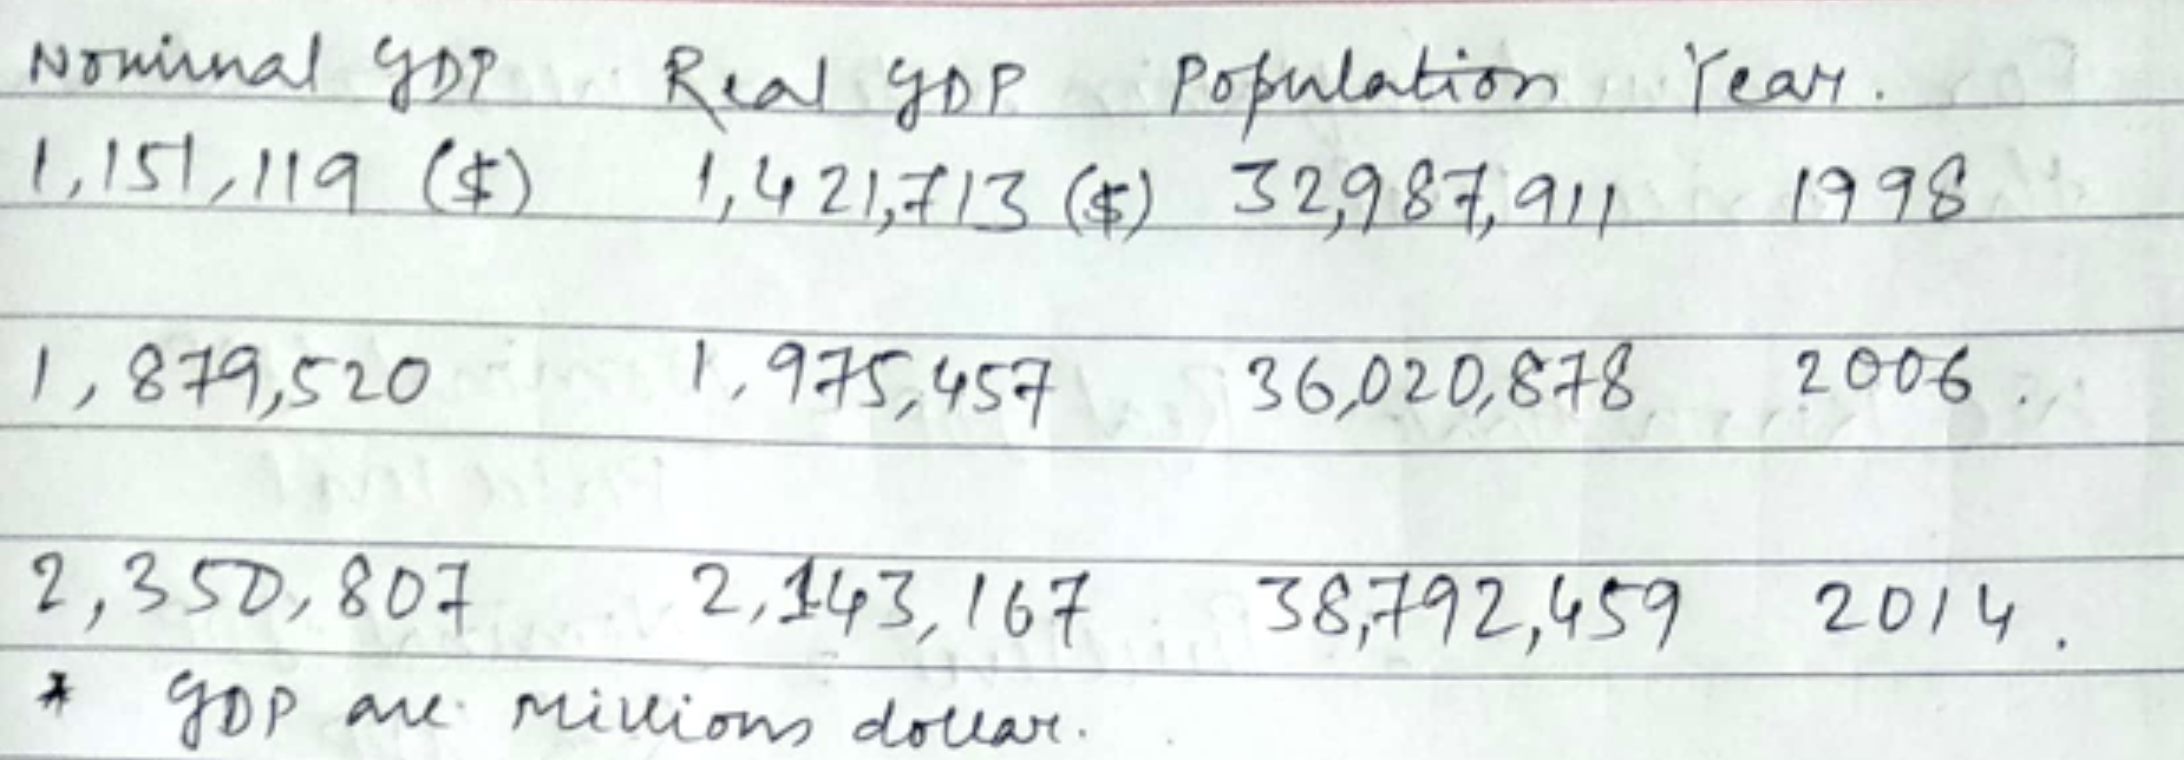 Nominal GDP Real GDP Population Year.
1,151,119 ($) 1,421,713 ($) 32,987,911 1998
1,879,520 1,975,457 36,020,878 2006.
2,350,807 2,143,167 38,792,459 2014.
* GDP are Millions dollar.